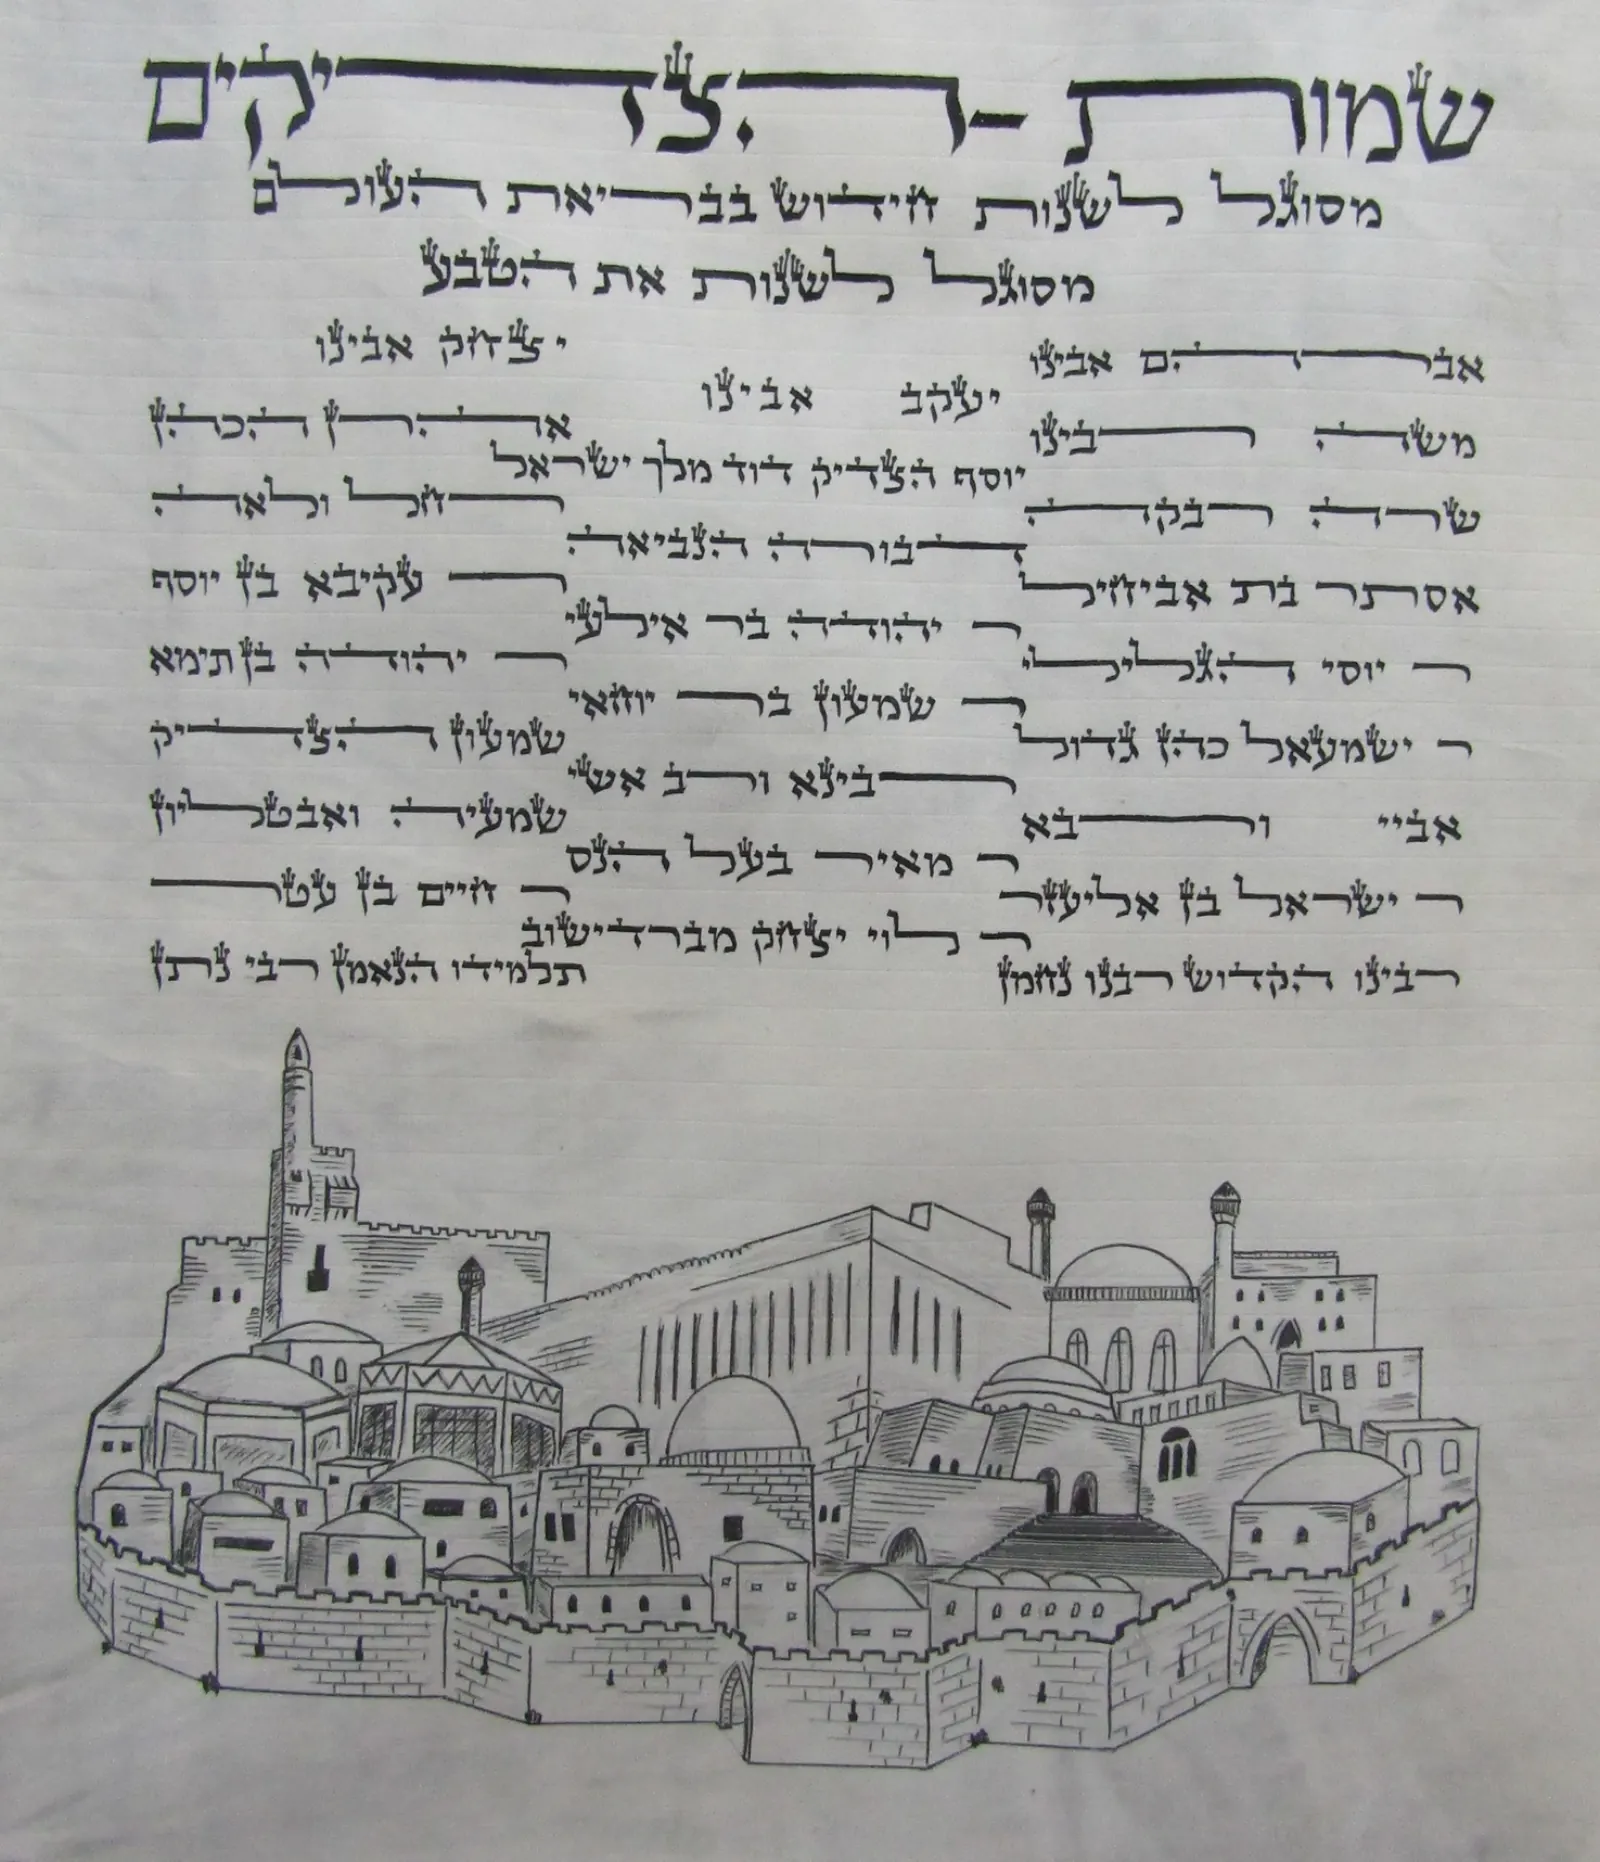 שמות - הצדיקים
מסוגל לשנות חידוש בבריאת העולם
מסוגל לשנות את הטבע
אברהם אבינו
יצחק אבינו
יעקב אבינו
משה רבינו
אהרן הכהן
יוסף הצדיק דוד מלך ישראל
שרה רבקה
רחל ולאה
דבורה הנביאה
אסתר בת אביחיל
ר עקיבא בן יוסף
ר יהודה בר אילעי
ר יוסי הגלילי
ר יהודה בן תימא
ר שמעון בר יוחאי
ר ישמעאל כהן גדול
שמעון הצדיק
רבינא ורב אשי
אביי ורבא
שמעיה ואבטליון
ר מאיר בעל הנס
ר ישראל בן אליעזר
ר חיים בן עטר
ר לוי יצחק מברדישוב
רבינו הקדוש רבנו נחמן
תלמידו הנאמן רבי נתן